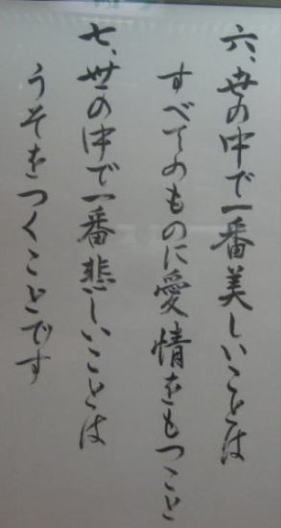 六、世の中で一番美しいことは
すべてのものに愛情をもつこと
七、世の中で一番悲しいことは
うそをつくことです